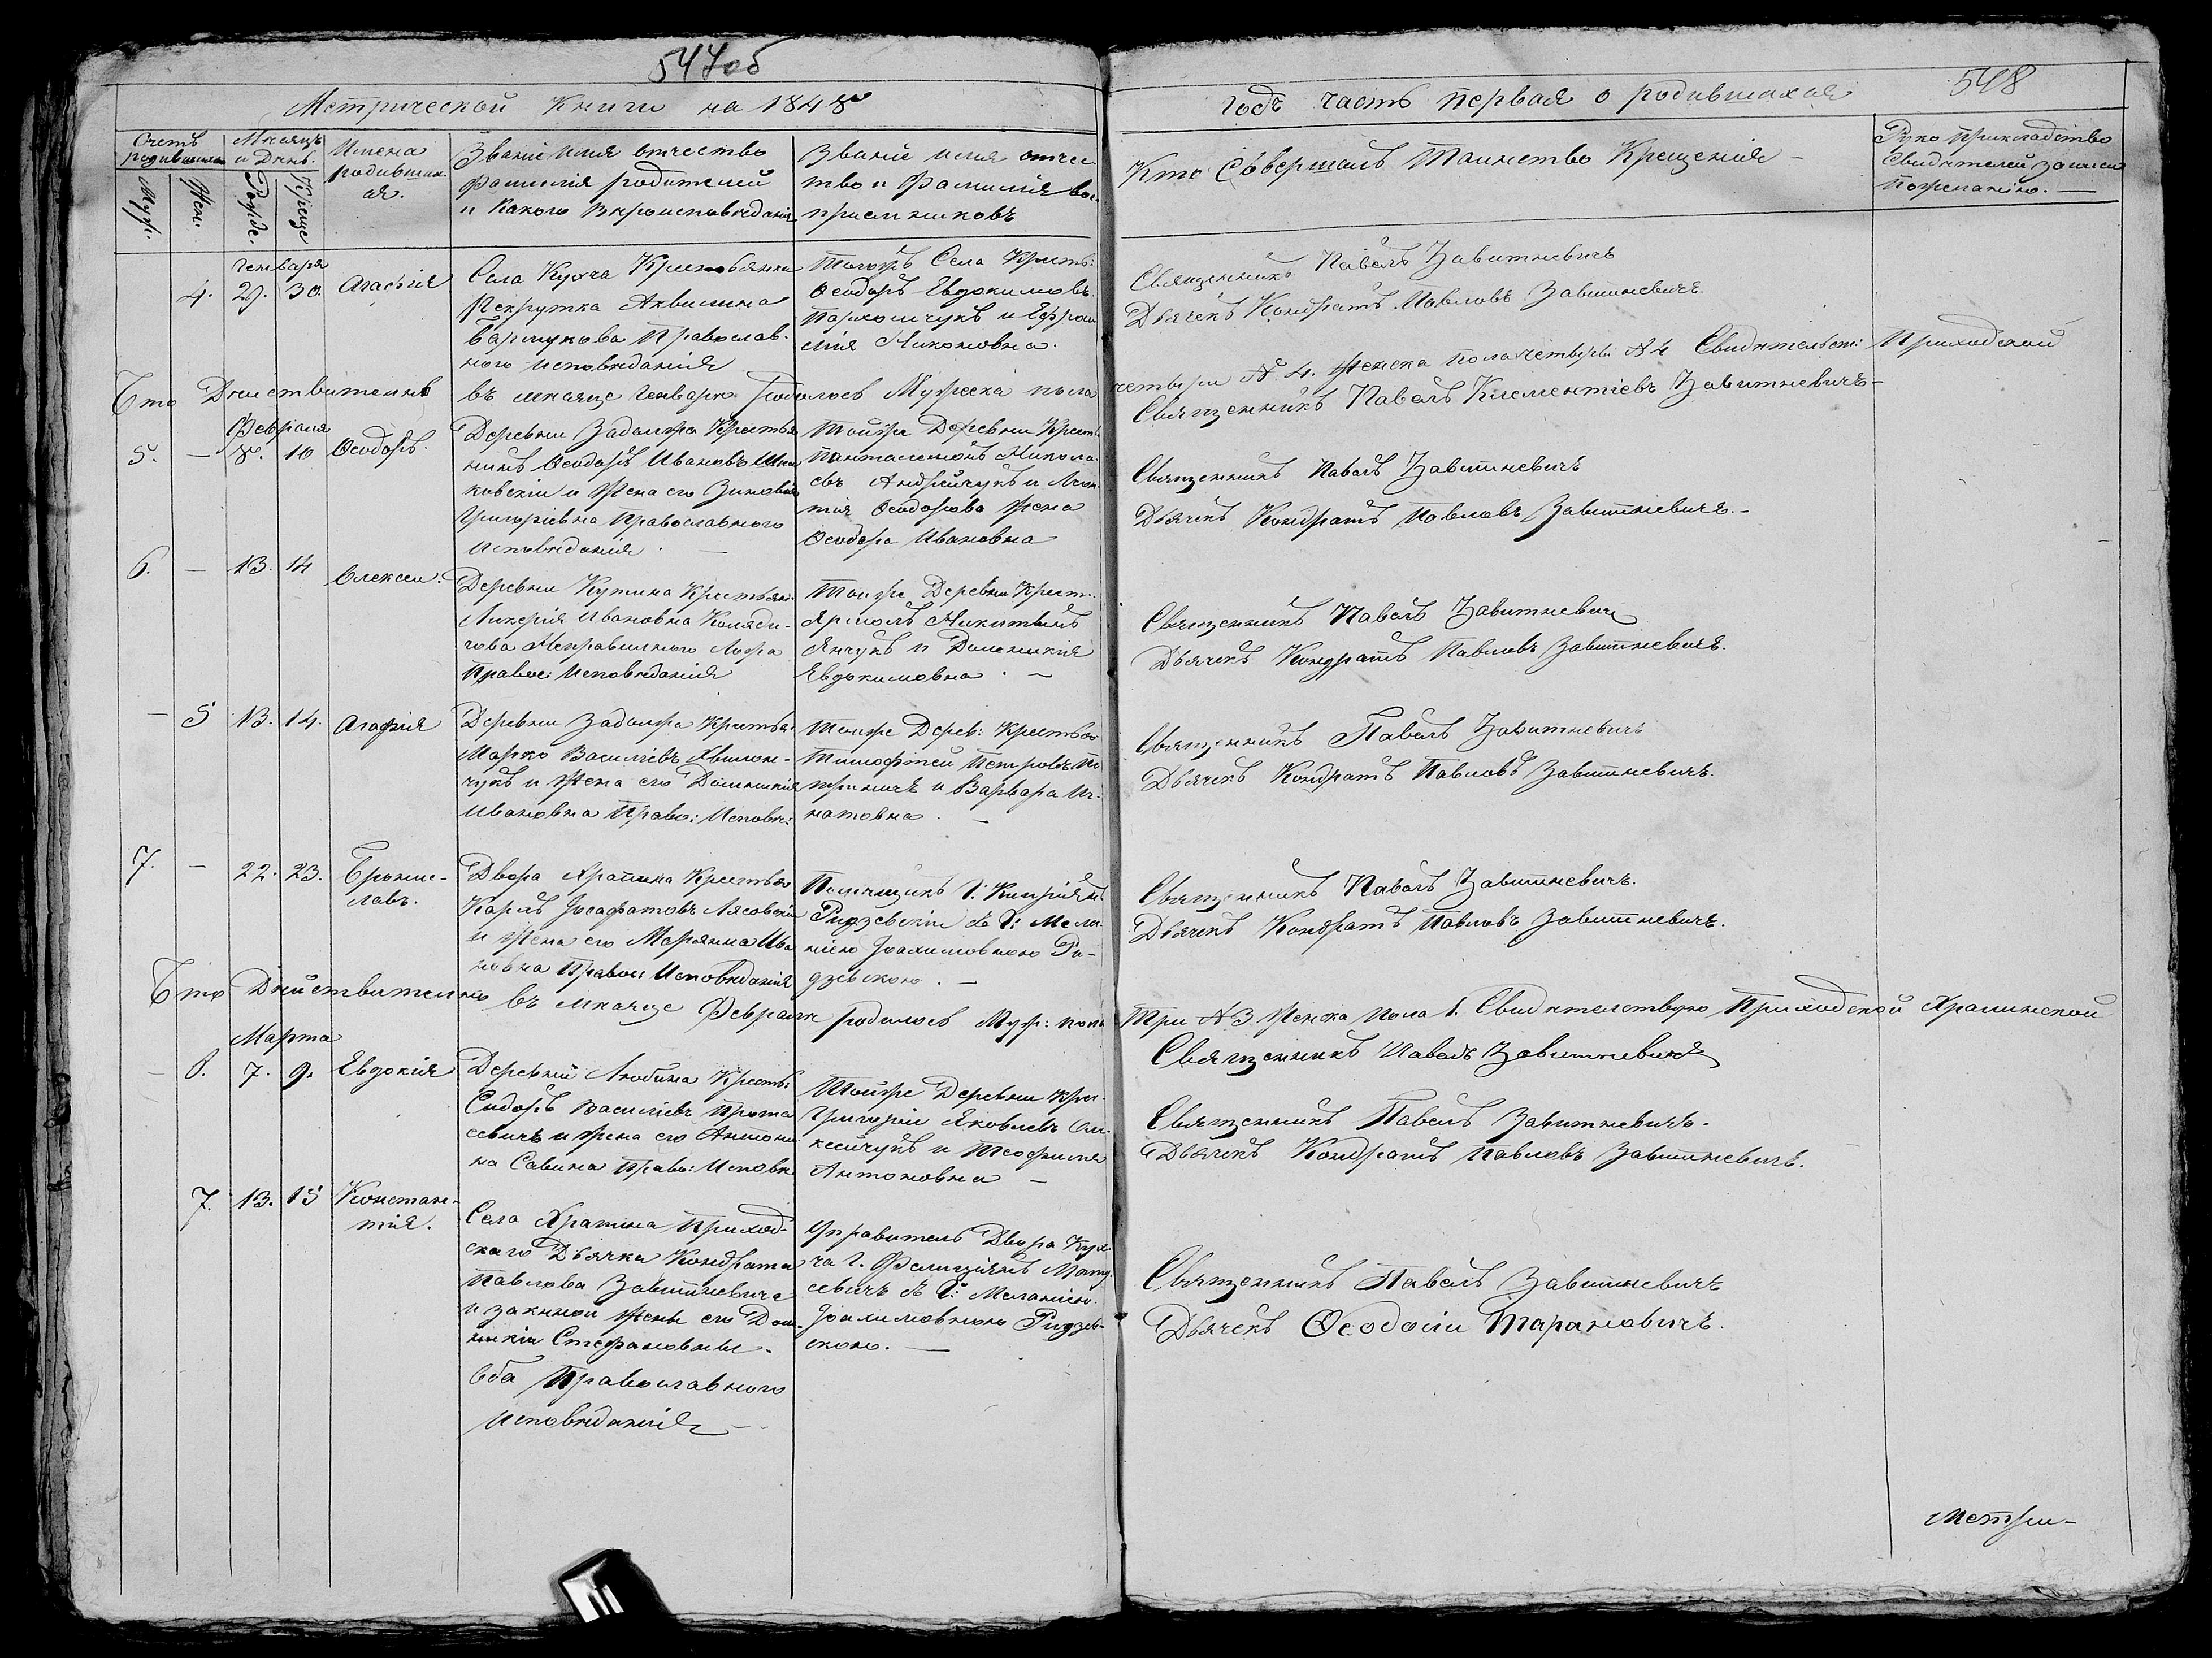 547об
548
Метрической Книги на 1848
годъ часть первая о родившихся
Счетъ родившихся
Муж.
Жен.
Мѣсяцъ и День.
Рожде.
Креще
Имена
родивших-
ся.
Званіе имя отчество
фамилія родителей
и Какого вѣроисповѣданія
Званіе имя отчес
тво и фамилія вос-
пріемниковъ
Кто Совершалъ Таинство Крещенія
Руко прикладство
Свидѣтелей записи
пожеланію.
Генваря
4. 29. 30. Агафія
Села Кухча Крестьянка
Рекрутка Акилина
православ-
ного исповѣданія
Тогожъ Села Кресть:
Ѳеодоръ Евдокимовъ
Пархомчукъ и Ефро
сия Никоновна.
Священникъ Павелъ Завитневичъ
Дьячекъ Кондратъ Павловъ Завитневичъ.
Что Дѣйствительно въ мѣсяцѣ Генварѣ родилось Мужеска пола
четыри № 4. Женска пола четыри № 4 Свидѣтельст: Приходской
Священникъ Павелъ Климентіевъ Завитневичъ
Февраля
5. — 8. 10 Ѳеодоръ.
Деревни Задолжа Крестья
нинъ Ѳеодоръ Ивановъ
ковскіи и Жена его Зиновія
Григоріевна Православного
Исповѣданія. —
Тойже Деревни Кресть
Пантелемонъ Никола-
евъ Андрейчукъ и
Ѳеодорова жена
Ѳеодора Ивановна
Священникъ Павелъ Завитневичъ
Дьячекъ Кондратъ Павловъ Завитневичъ.
6. — 13. 14 Алексеи.
Деревни Кутина Крестьян:
Ликерія Ивановна Коляди-
чова Неправилного Ложа
Правос: Исповѣданія
Тойже Деревни Крест:
Ярмолъ Никитинъ
Янчукъ и Доминикія
Евдокимовна. —
Священникъ Павелъ Завитневичъ
Дьячекъ Кондратъ Павловъ Завитневичъ.
— 5 13. 14. Агафія
Деревни Задолжа Крестья-
Марко Василіевъ Хвилон-
чукъ и Жена его Доминикія
Ивановна Право: Исповѣ:
Тойже Дерев: Крестья
Тимофтей Петровъ Пе
триничъ и Варвара Иг-
натовна. —
Священникъ Павелъ Завитневичъ
Дьячекъ Кондратъ Павловъ Завитневичъ.
7. — 22. 23. Бронис-
лавъ.
Двора Храпина Крестья
Карлъ Іосафатовъ Лясовскіи
и жена его Марянна Ива
новна Правос: Исповѣданія
Помѣщикъ Г: Кипріянъ
Ридзевскіи съ Г: Мела-
ніею Іоахимовною Ри-
дзевскою. —
Священникъ Павелъ Завитневичъ.
Дьячекъ Кондратъ Павловъ Завитневичъ.
Что Дѣйствително въ мѣсяцѣ Февралѣ родилось Муж: пола
Три №3 Женска пола 1. Свидѣтелствую Приходской Храпинской
Священникъ Павелъ Завитневичъ
Марта
— 6. 7. 9. Евдокія
Деревни Любина Кресть:
Сидоръ Василіевъ Прота
севичъ и жена его Антони-
на Савина Право: Исповѣ
Тойже Деревни Кре-
Григоріи Яковлевъ Оли-
кейчукъ и Теофилия
Антоновна —
Священникъ Павелъ Завитневичъ.
Дьячекъ Кондратъ Павловъ Завитневичъ.
7. 13. 15 Констан-
тія.
Села Храпина Приход-
скаго Дьячка Кондрата
Павлова Завитневича
и законной жены его Дом-
никіи Стефановны.
оба Православного
исповѣданія —
Управитель Двора Кух-
ча Г. Фелиціянъ Мату-
севичъ съ Г: Меланіею
Іоахимовною Ридзев-
скою. —
Священникъ Павелъ Завитневичъ
Дьячекъ Ѳеодосіи Таранович.
Метри-